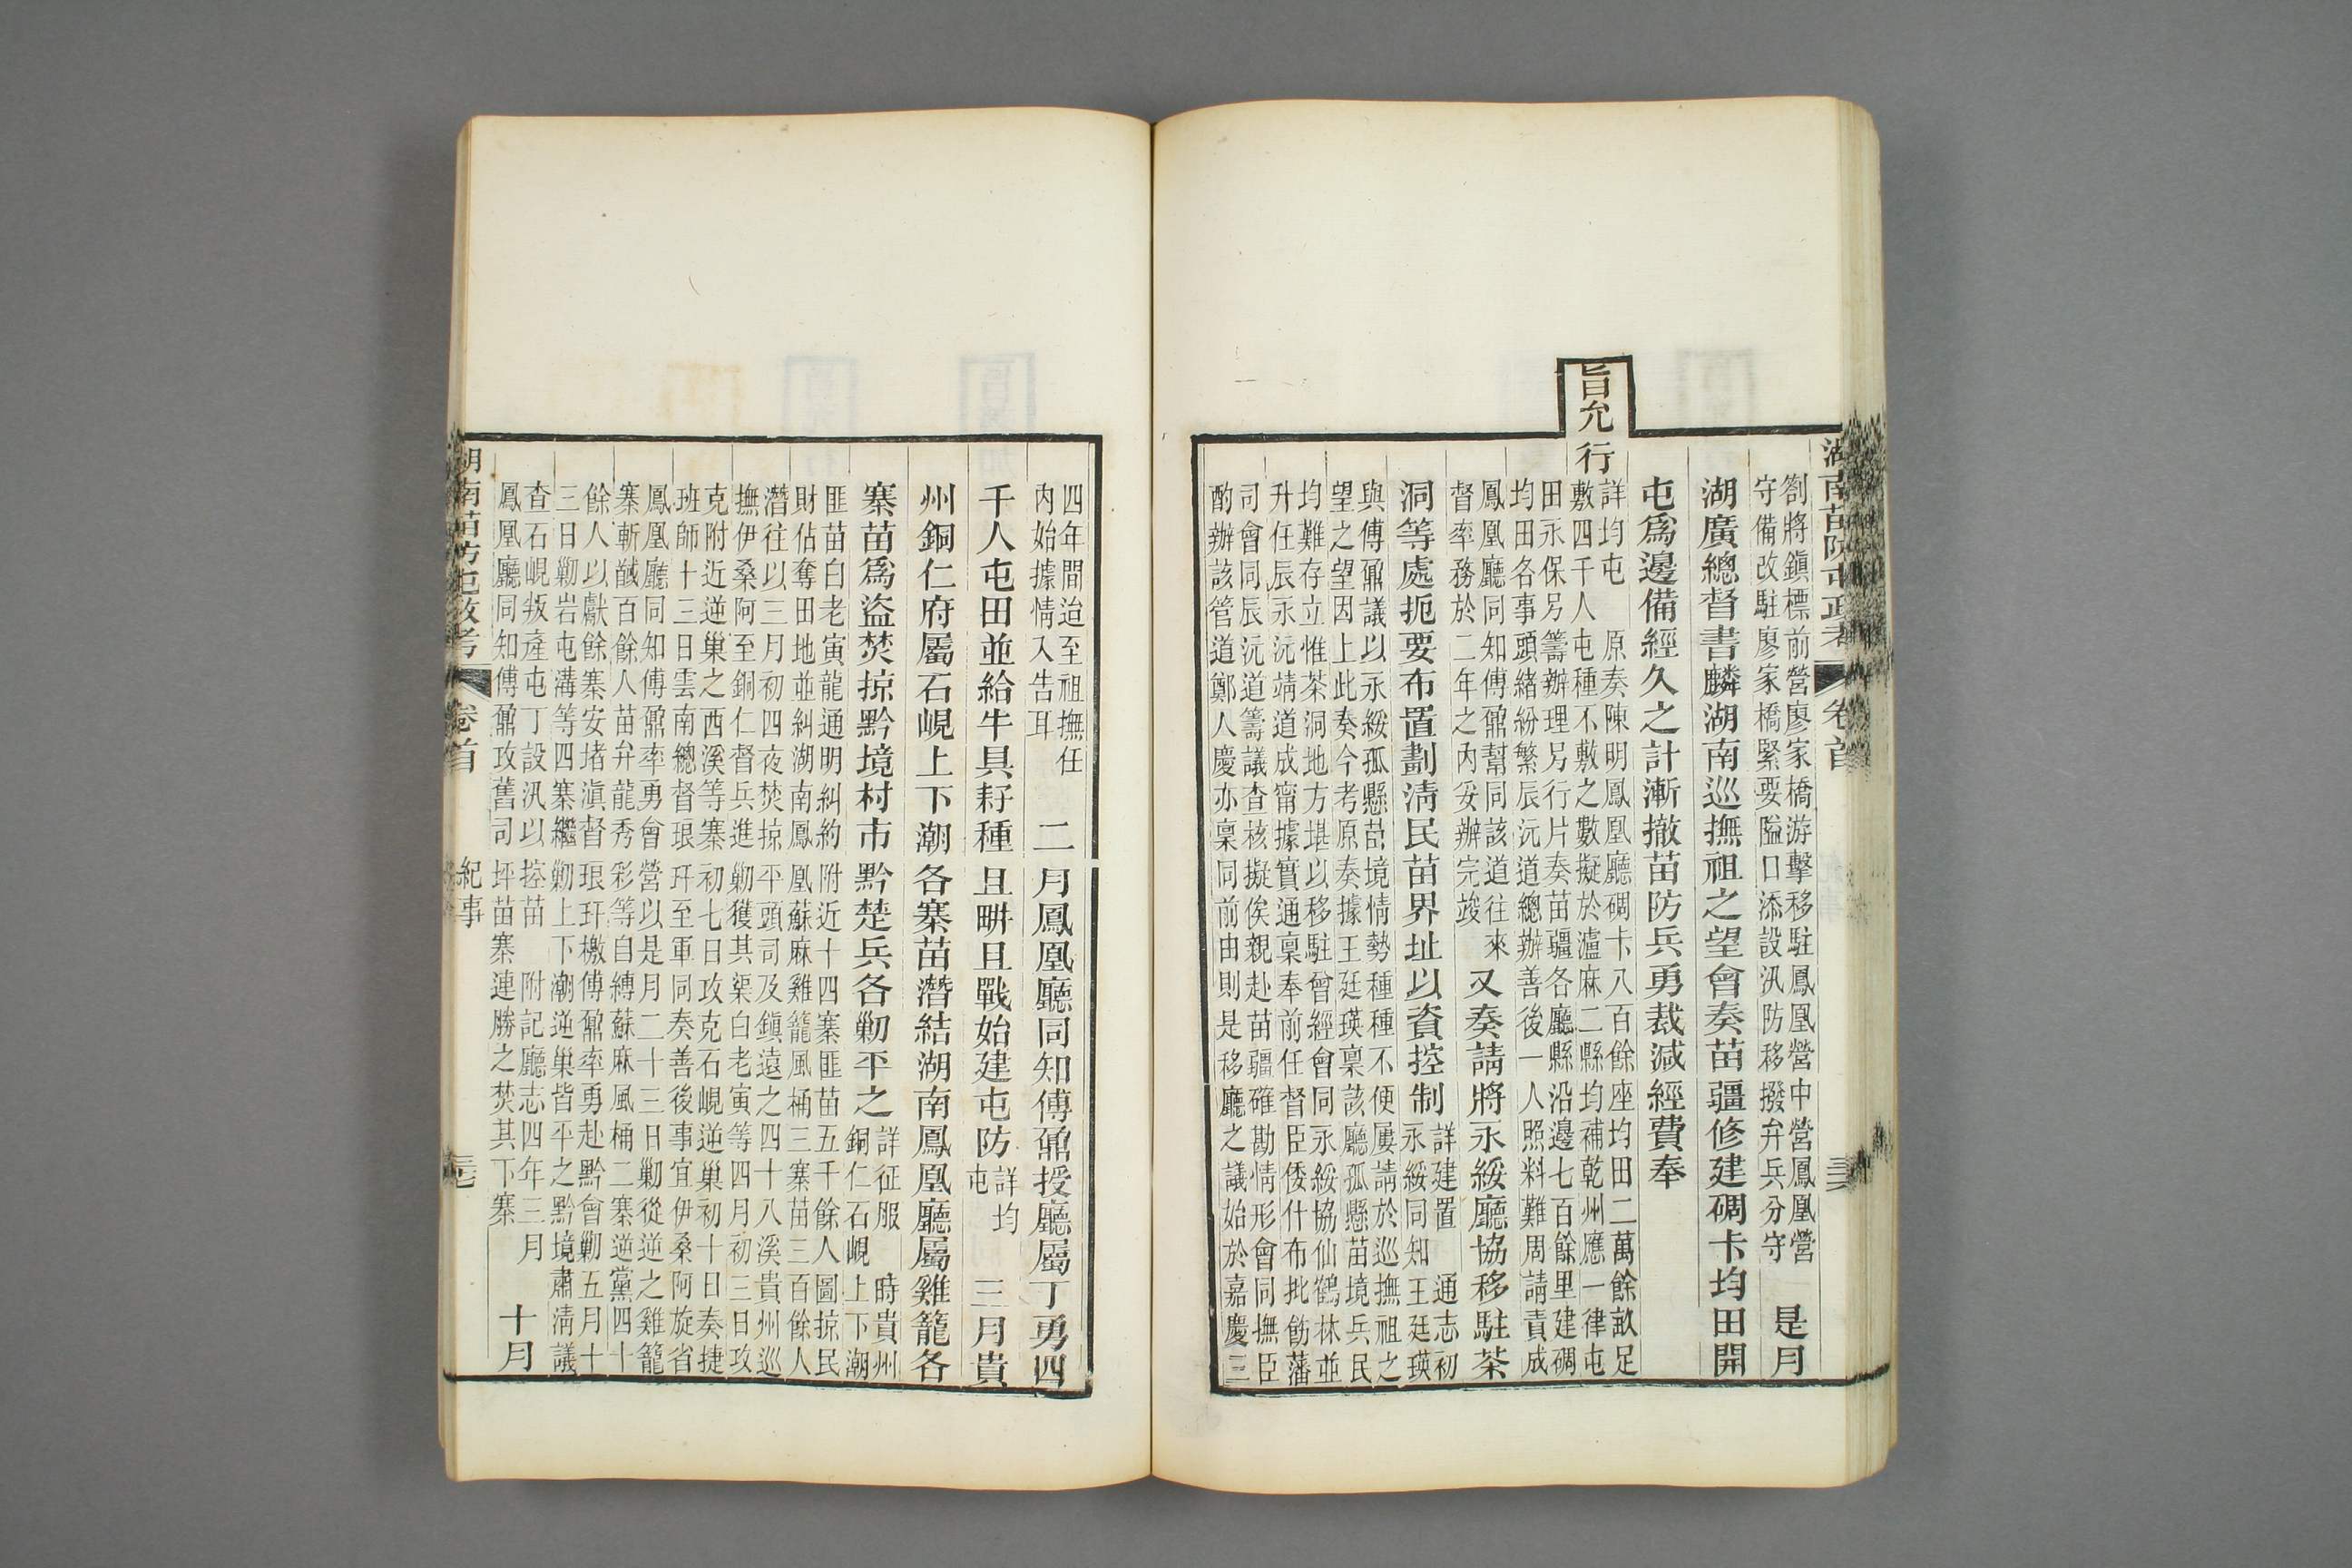 湖南苗防屯政考 卷首
劄將鎮標前營廖家橋游擊移駐鳳凰營中營鳳凰營
守備改駐廖家橋緊要隘口添設汛防移撥弁兵分守
是月
湖廣總督書麟湖南巡撫祖之望會奏苗疆修建碉卡均田開
屯爲邊備經久之計漸撤苗防兵勇裁減經費奉
旨允行
詳均屯 原奏陳明鳳凰廳碉卡八百餘座均田二萬餘畝足
敷四千人屯種不敷之數擬於瀘麻二縣均補乾州應一律屯
田永保另籌辦理另行片奏苗疆各廳縣沿邊七百餘里建碉
均田各事頭緒紛繁辰沅道總辦善後一人照料難周請責成
鳳凰廳同知傅鼐幫同該道往來
督率務於二年之內妥辦完竣
又奏請將永綏廳協移駐茶
洞等處扼要布置劃清民苗界址以資控制
詳建置 通志初
永綏同知王廷瑛
與傅鼐議以永綏孤懸苗境情勢種種不便屢請於巡撫祖之
望之望因上此奏今考原奏據王廷瑛稟該廳孤懸苗境兵民
均難存立惟茶洞地方堪以移駐曾經會同永綏協仙鶴林並
升任辰永沅靖道成甯據實通稟奉前任督臣倭什布批飭藩
司會同辰沅道籌議查核擬俟親赴苗疆確勘情形會同撫臣
酌辦該管道鄭人慶亦稟同前由則是移廳之議始於嘉慶三
四年間迨至祖撫任
內始據情入告耳
二月鳳凰廳同知傅鼐授廳屬丁勇四
千人屯田並給牛具耔種且畊且戰始建屯防
詳均
屯
三月貴
州銅仁府屬石峴上下潮各寨苗潛結湖南鳳凰廳屬雞籠各
寨苗爲盜焚掠黔境村市黔楚兵各勦平之
詳征服 時貴州
銅仁石峴上下潮
匪苗白老寅龍通明糾約附近十四寨匪苗五千餘人圖掠民
財佔奪田地並糾湖南鳳凰蘇麻雞籠風桶三寨苗三百餘人
潛往以三月初四夜焚掠平頭司及鎮遠之四十八溪貴州巡
撫伊桑阿至銅仁督兵進勦獲其渠白老寅等四月初三日攻
克附近逆巢之西溪等寨初七日攻克石峴逆巢初十日奏捷
班師十三日雲南總督琅玕至軍同奏善後事宜伊桑阿旋省
鳳凰廳同知傅鼐率勇會營以是月二十三日勦從逆之雞籠
寨斬馘百餘人苗弁龍秀彩等自縛蘇麻風桶二寨逆黨四十
餘人以獻餘寨安堵滇督琅玕檄傅鼐率勇赴黔會勦五月十
三日勦岩屯溝等四寨繼勦上下潮逆巢皆平之黔境肅淸議
查石峴叛產屯丁設汛以控苗 附記廳志四年三月
鳳凰廳同知傅鼐攻舊司坪苗寨連勝之焚其下寨
十月
湖南苗防屯政考 卷首 紀事